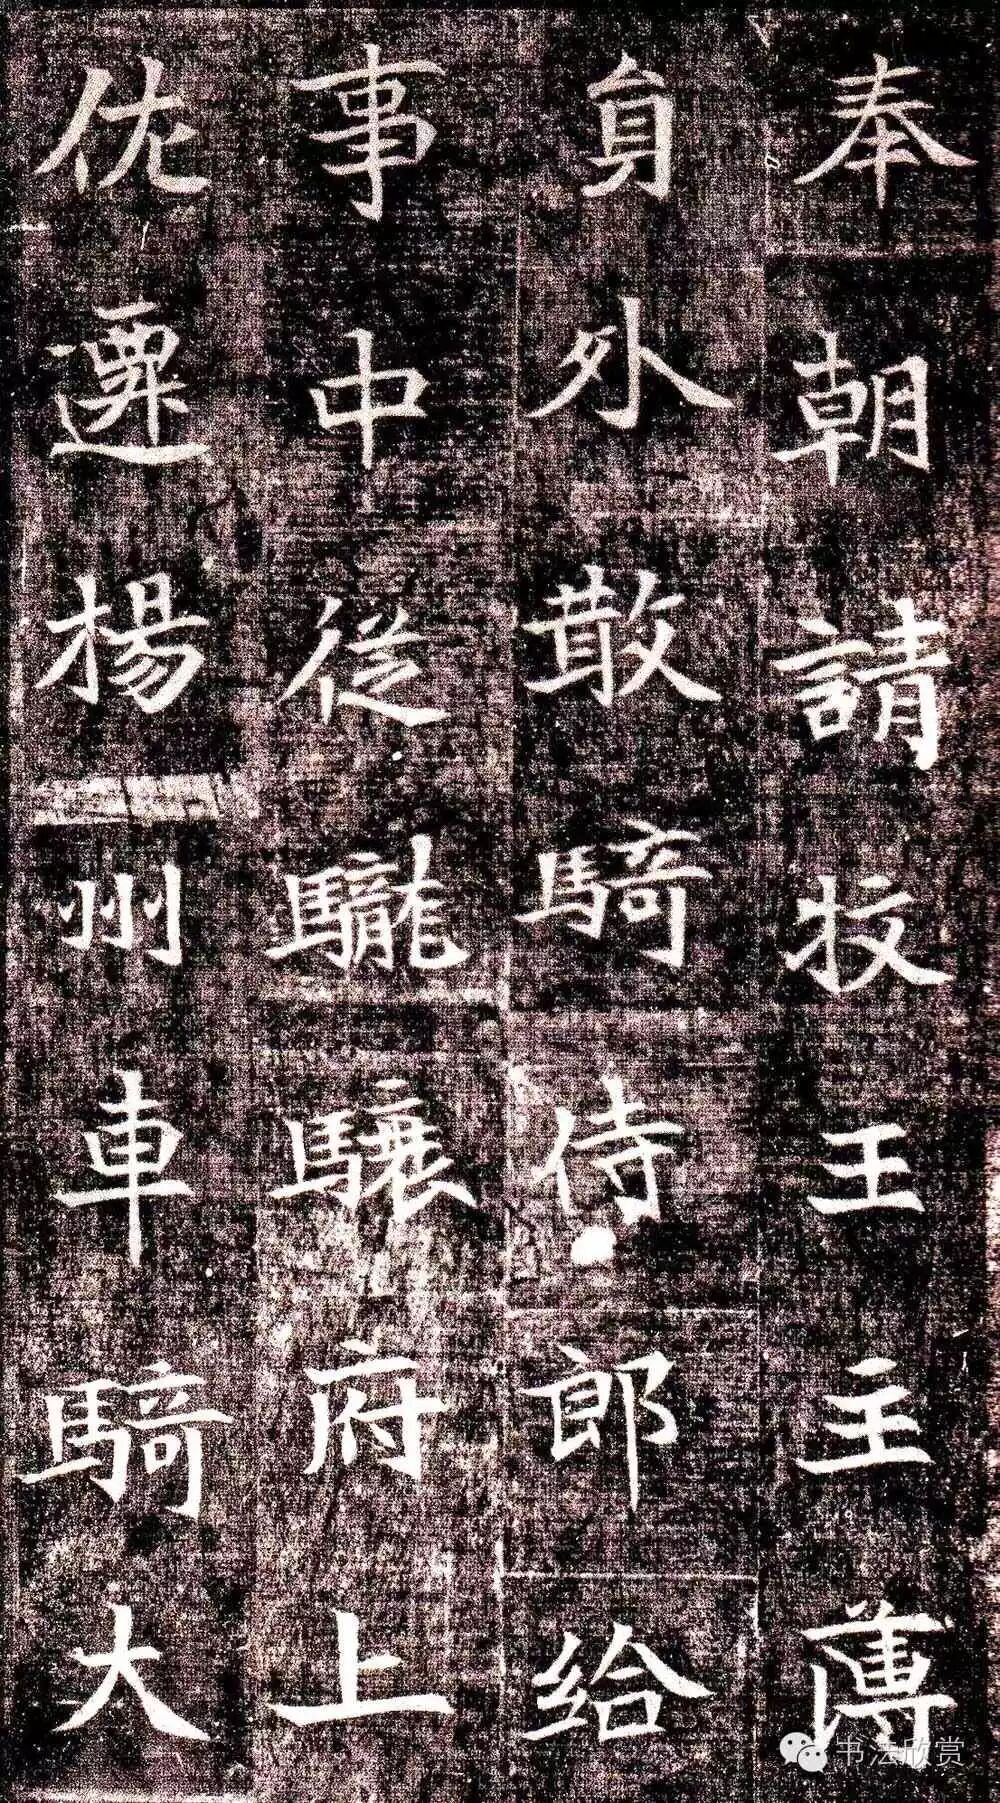 奉朝請牧王主薄
員外散騎侍郎給
事中從驤驤府上
佐遷楊州車騎大
书法欣赏